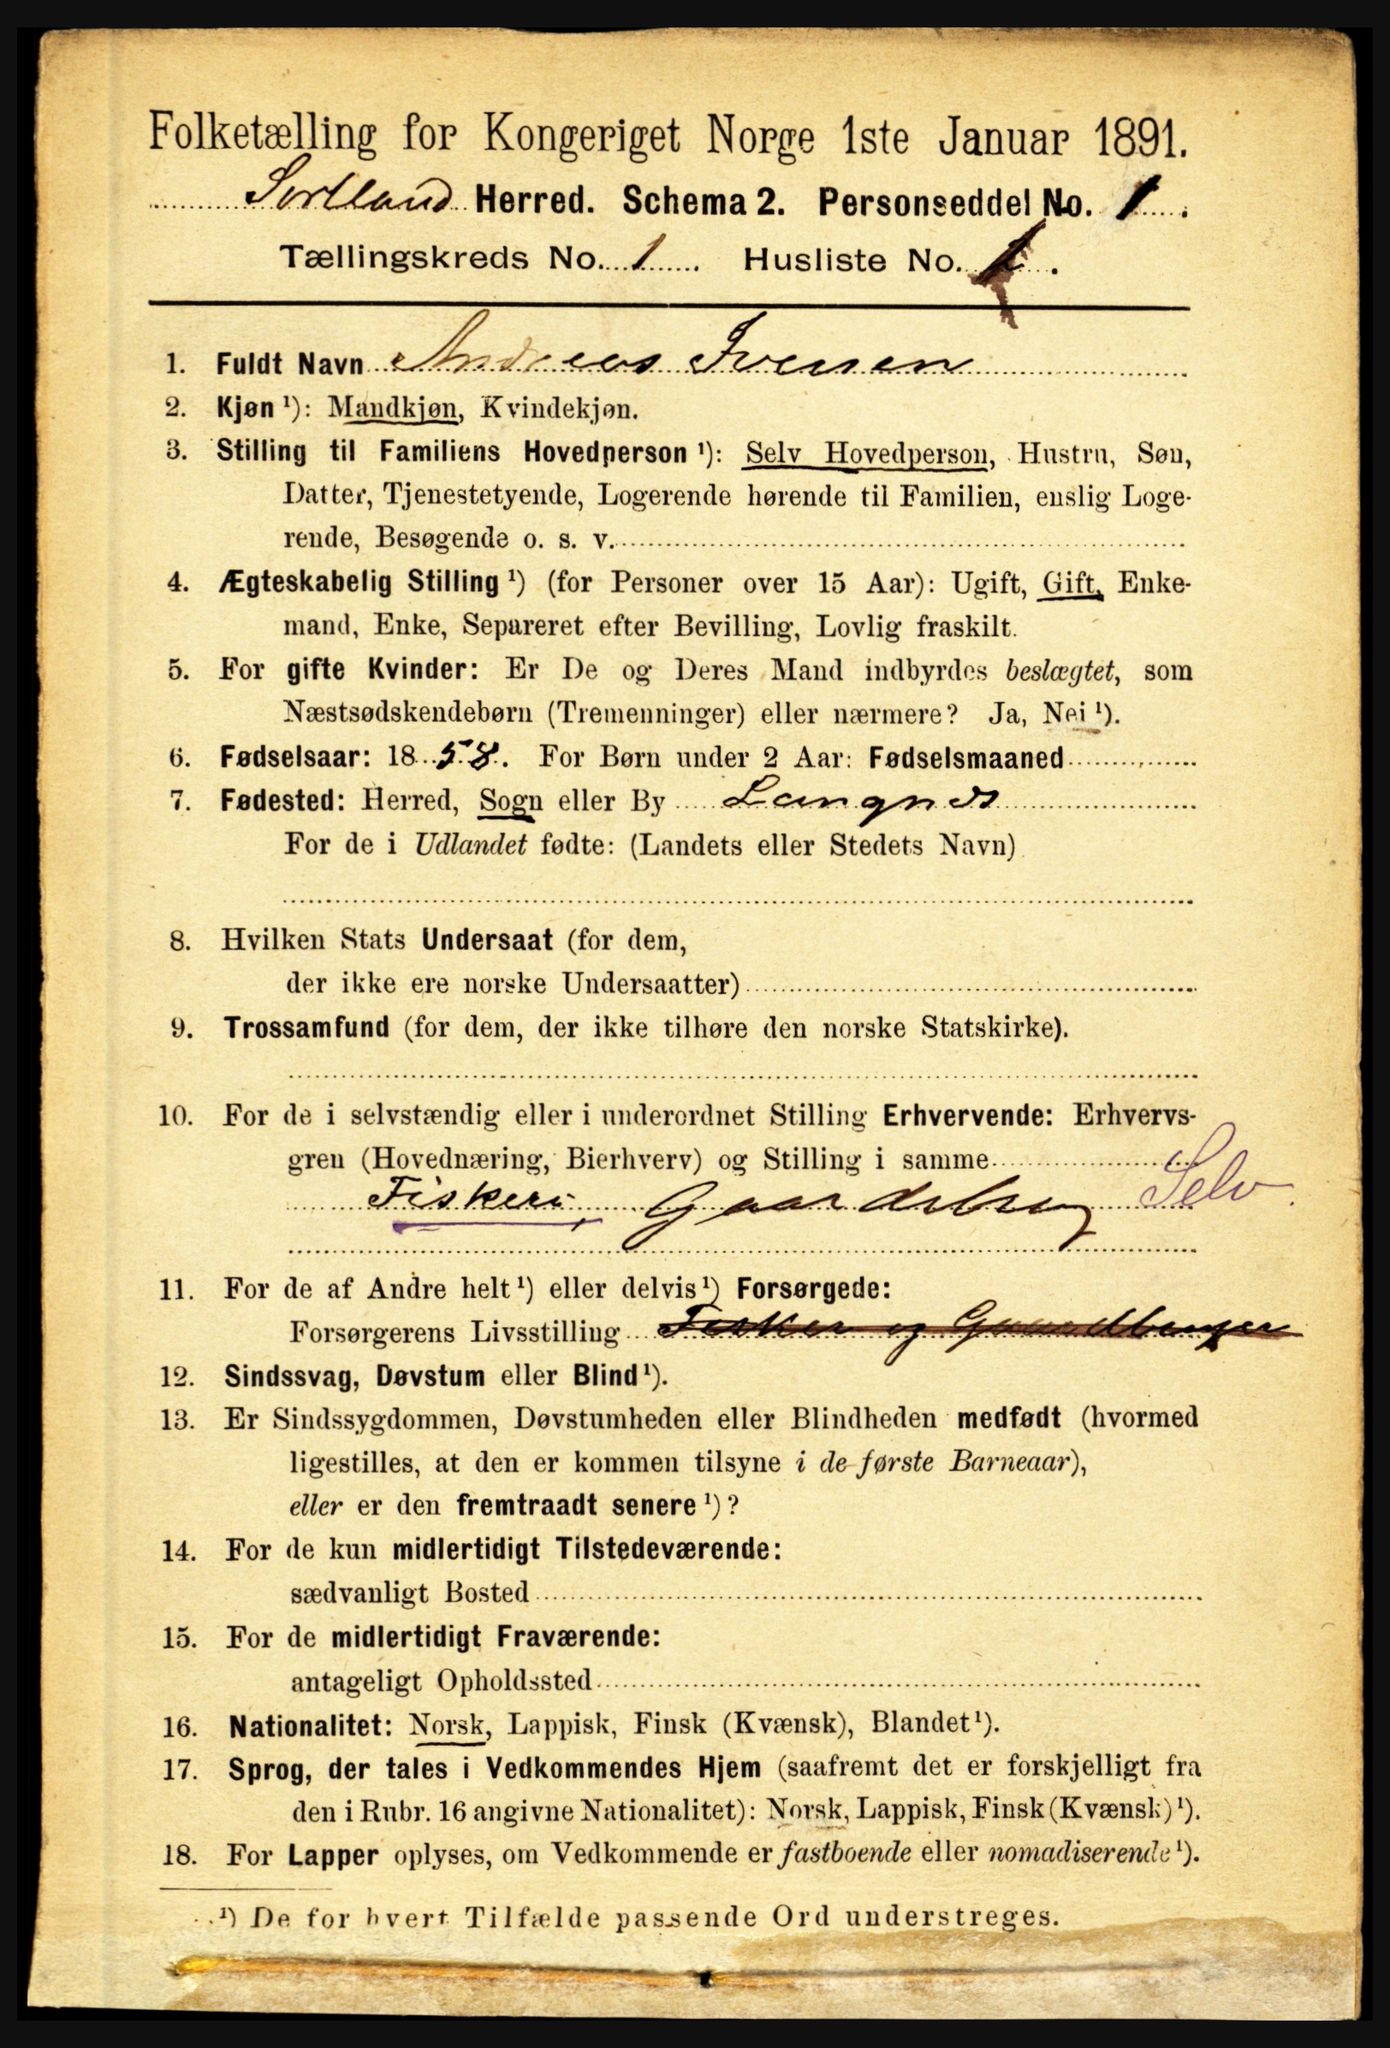 Folketælling for Kongeriget Norge 1ste Januar 1891.
Sortland Herred. Schema 2. Personseddel No. 1.
Tællingskreds No. 1. Husliste No. 1.
1. Fuldt Navn Andreas Iversen
2. Kjøn ¹): Mandkjøn, Kvindekjøn.
3. Stilling til Familiens Hovedperson ¹): Selv Hovedperson, Hustru, Søn,
Datter, Tjenestetyende, Logerende hørende til Familien, enslig Loge-
rende, Besøgende o. s. v.
4. Ægteskabelig Stilling ¹) (for Personer over 15 Aar): Ugift, Gift, Enke-
mand, Enke, Separeret efter Bevilling, Lovlig fraskilt.
5. For gifte Kvinder: Er De og Deres Mand indbyrdes beslægtet, som
Næstsødskendebørn (Tremenninger) eller nærmere? Ja, Nei ¹).
6. Fødselsaar: 1858. For Børn under 2 Aar: Fødselsmaaned
7. Fødested: Herred, Sogn eller By Langnes
For de i Udlandet fødte: (Landets eller Stedets Navn)
8. Hvilken Stats Undersaat (for dem,
der ikke ere norske Undersaatter)
9. Trossamfund (for dem, der ikke tilhøre den norske Statskirke).
10. For de i selvstændig eller i underordnet Stilling Erhvervende: Erhvervs-
gren (Hovednæring, Bierhverv) og Stilling i samme
Fiskeri, Gaardsbrug Selv.
11. For de af Andre helt ¹) eller delvis ¹) Forsørgede:
Forsørgerens Livsstilling Fisker og Gaardbruger
12. Sindssvag, Døvstum eller Blind ¹).
13. Er Sindssygdommen, Døvstumheden eller Blindheden medfødt (hvormed
ligestilles, at den er kommen tilsyne i de første Barneaar),
eller er den fremtraadt senere ¹)?
14. For de kun midlertidigt Tilstedeværende:
sædvanligt Bosted
15. For de midlertidigt Fraværende:
antageligt Opholdssted
16. Nationalitet: Norsk, Lappisk, Finsk (Kvænsk), Blandet ¹).
17. Sprog, der tales i Vedkommendes Hjem (saafremt det er forskjelligt fra
den i Rubr. 16 angivne Nationalitet): Norsk, Lappisk, Finsk (Kvænsk) ¹).
18. For Lapper oplyses, om Vedkommende er fastboende eller nomadiserende ¹).
¹) De for hvert Tilfælde passende Ord understreges.